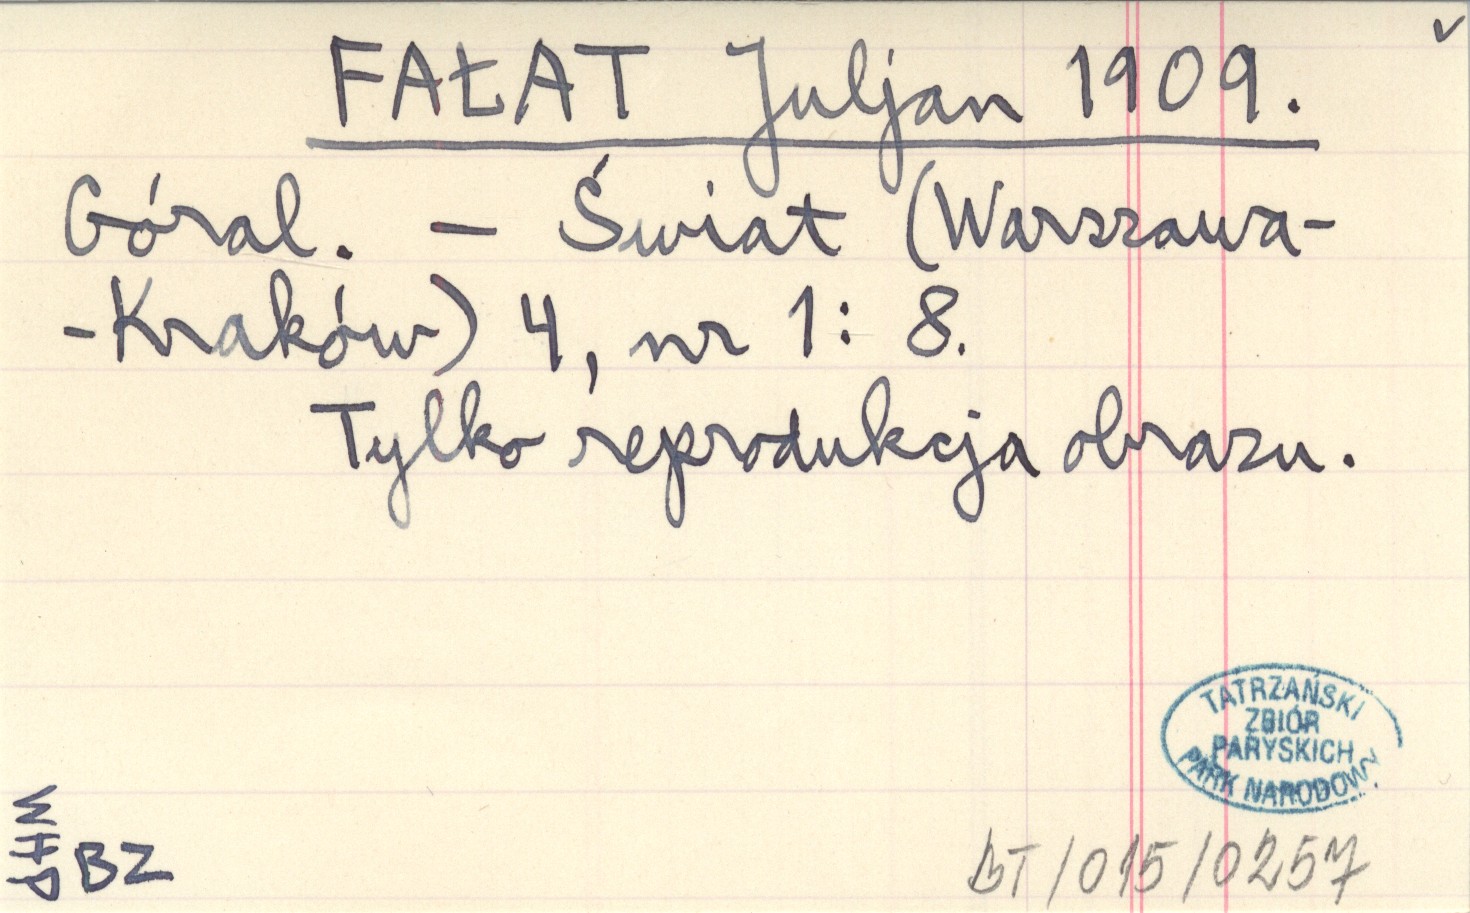 FAŁAT Juljan 1909.
Góral. – Świat (Warszawa-
-Kraków) 4, nr 1: 8.
Tylko reprodukcja obrazu.
TATRZAŃSKI
ZBIÓR
PARYSKICH
PARK NARODOWY
BZ
BT/015/0257